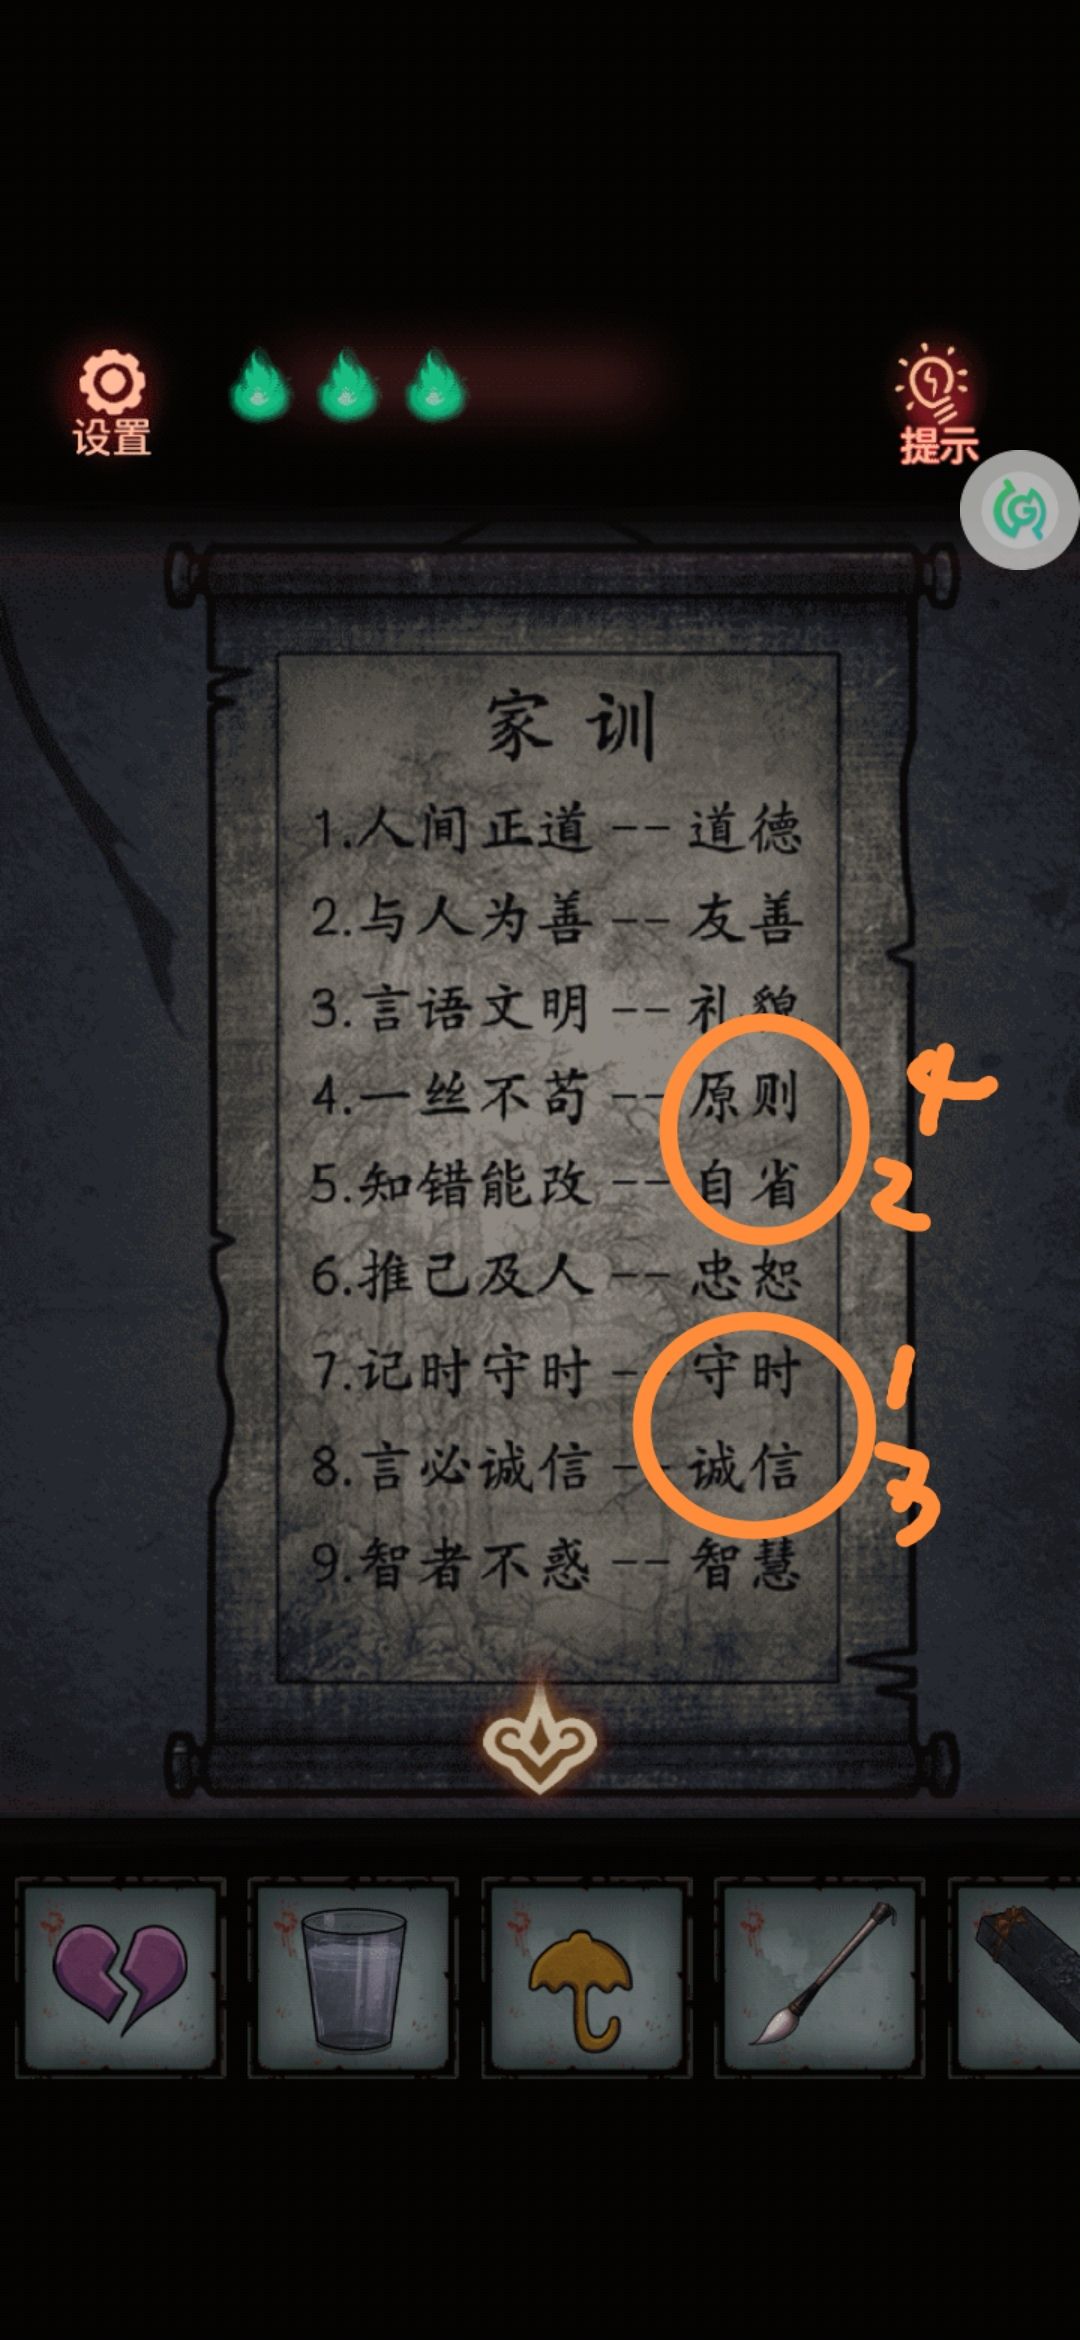 设置
提示
家训
1.人间正道--道德
2.与人为善--友善
3.言语文明--礼貌
4.一丝不苟--原则
4
5.知错能改--自省
2
6.推己及人--忠恕
7.记时守时--守时
1
8.言必诚信--诚信
3
9.智者不惑--智慧